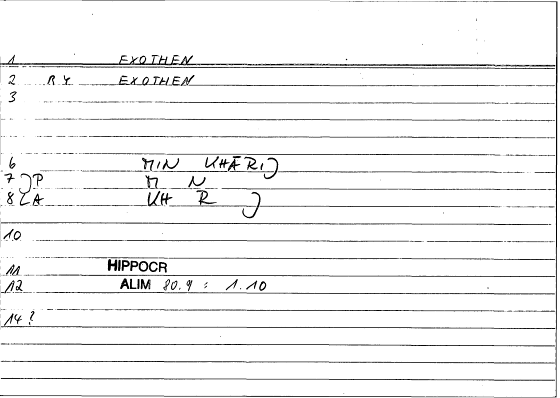 1 EXOTHEN
2 R Y EXOTHEN
3
6 MIN KHĀRIJ
7 P M N
8 A KH R J
10
11 HIPPOCR
12 ALIM 80.9 : 1.10
14 ?